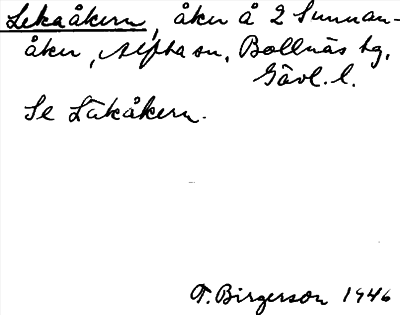 Lekaåkern, åker å 2 Sunnan-
åker, Alfta sn, Bollnäs tg,
Gävl. l.
Se Läkåkern.
T. Birgerson 1946